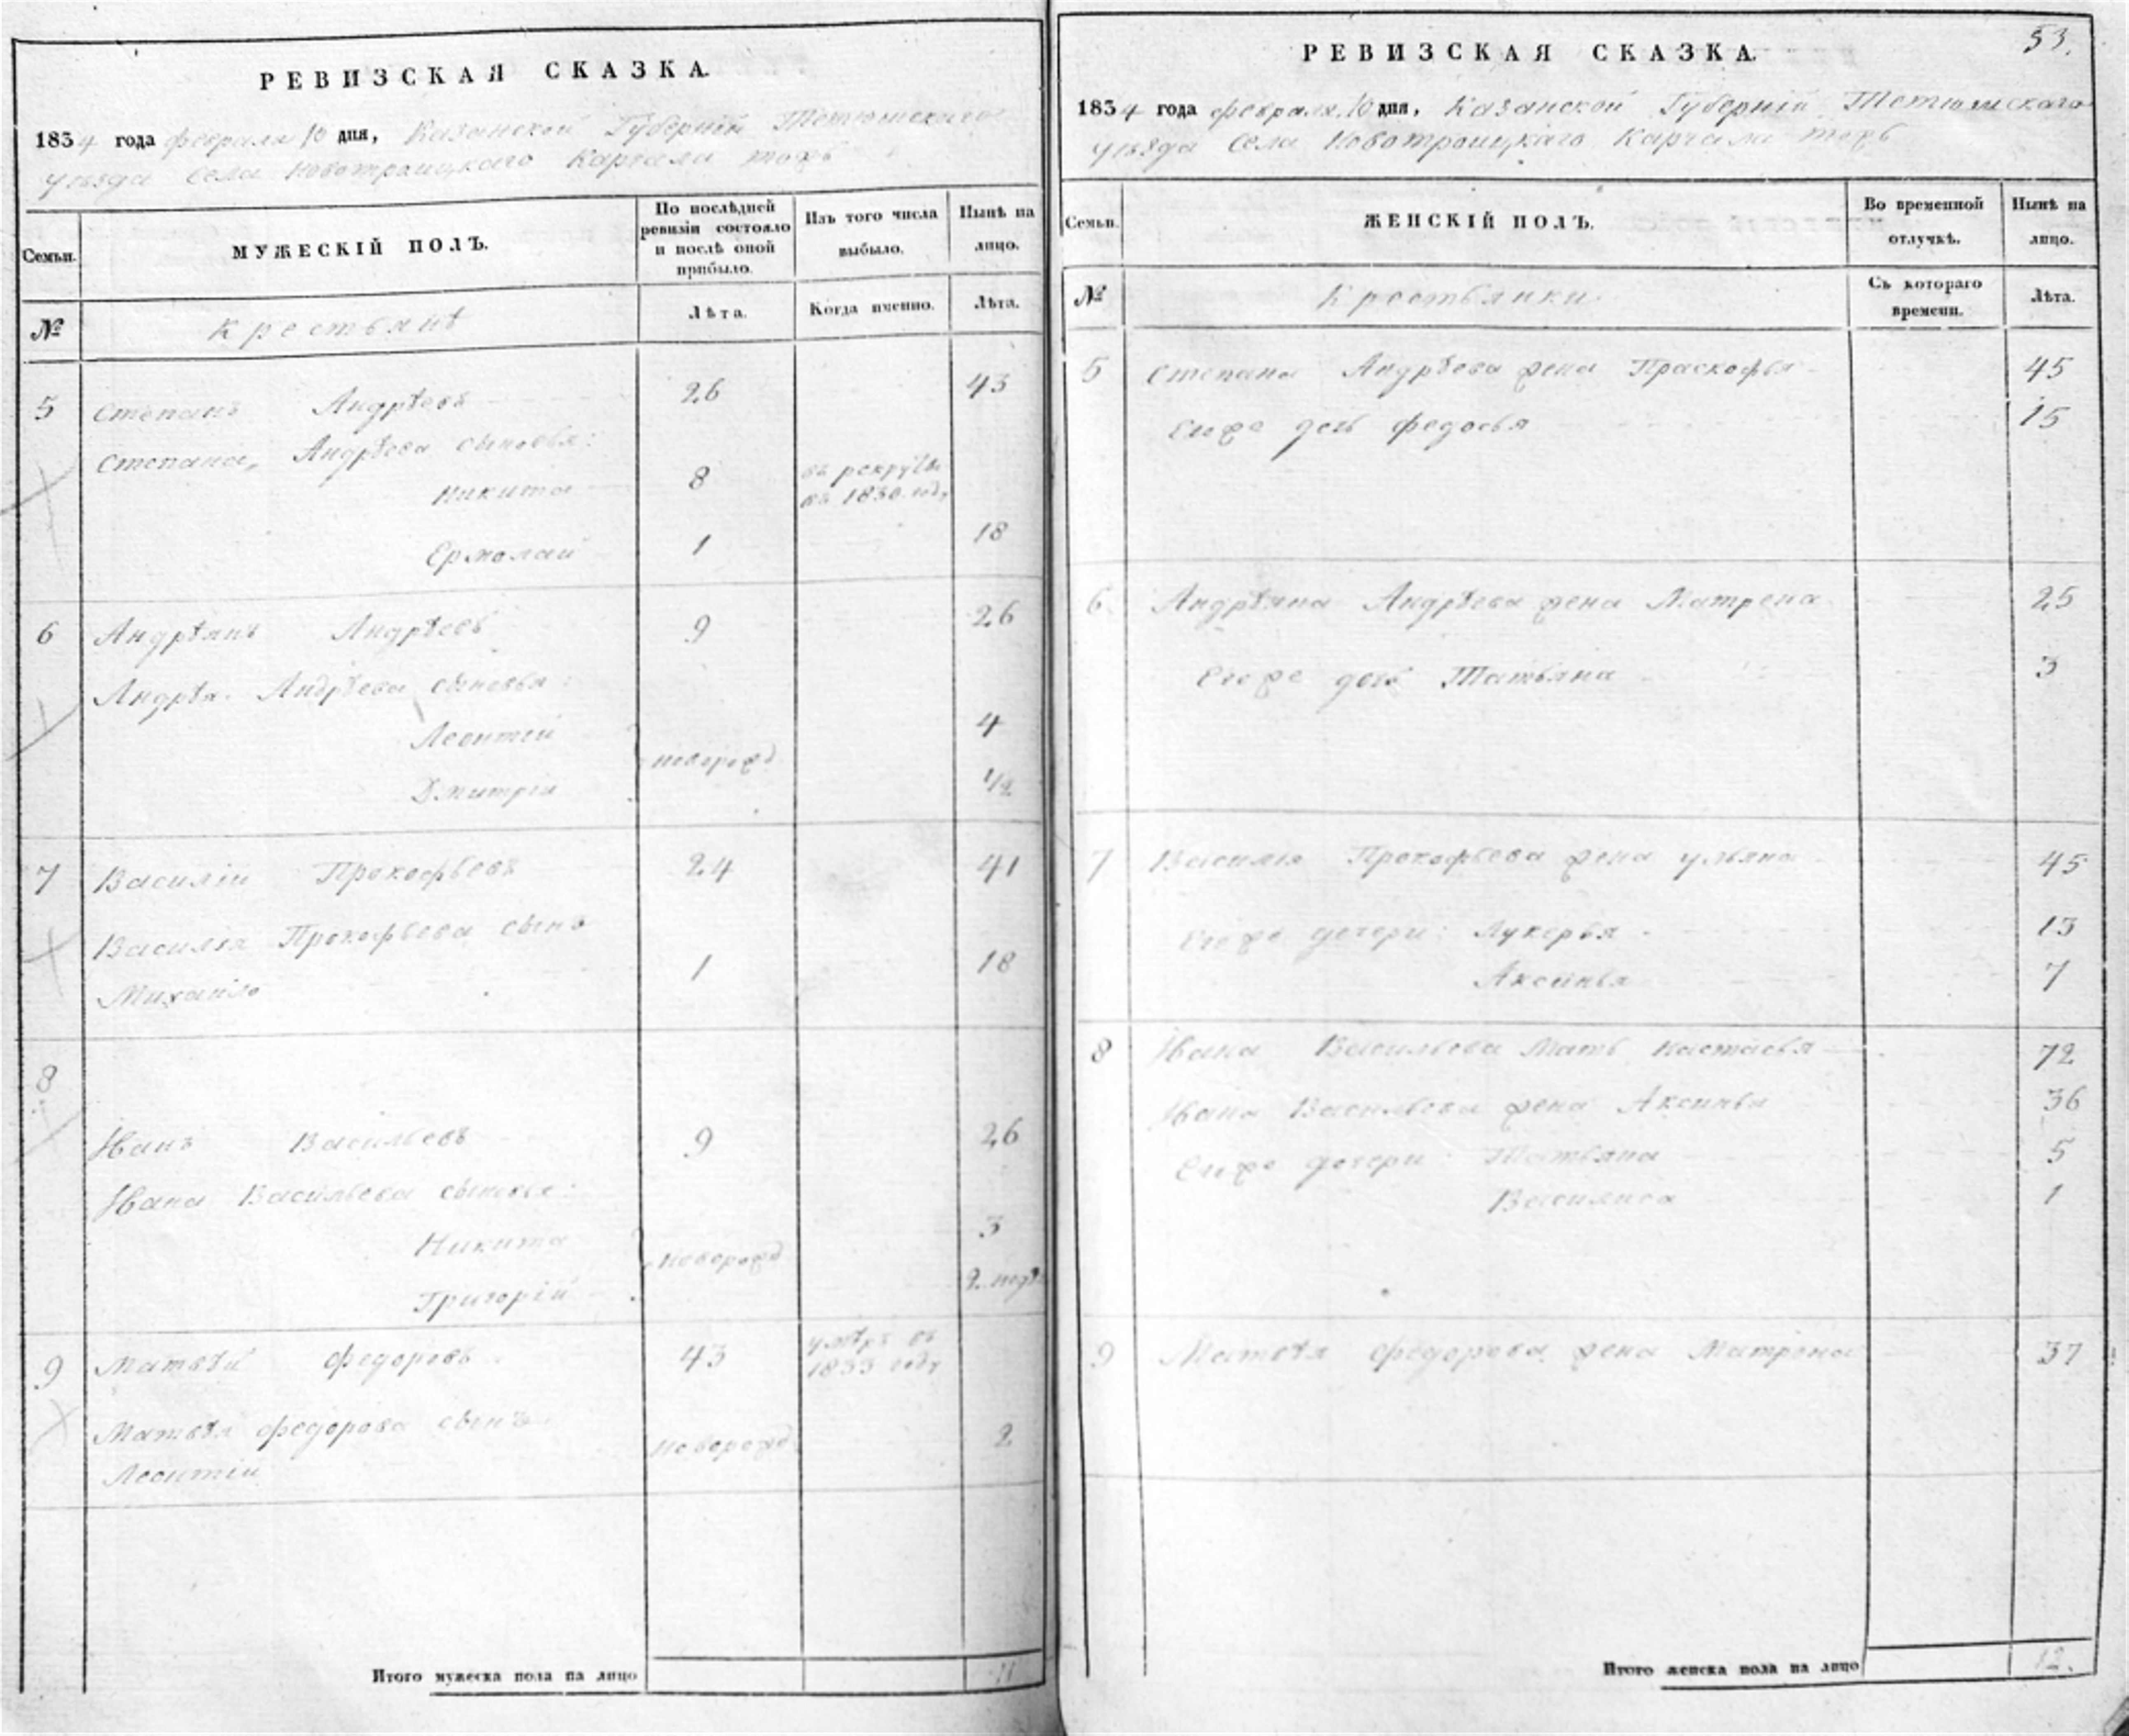 РЕВИЗСКАЯ СКАЗКА.
1834 года февраля 10 дня, Казанской Губерніи Тетюшскаго
уѣзда Села Новотроицкаго Каргала тожъ
Семьи.
МУЖЕСКІЙ ПОЛЪ.
По послѣдней ревизіи состояло и послѣ оной прибыло.
Изъ того числа выбыло.
Нынѣ на лицо.
№
Крестьянѣ
Лѣта.
Когда именно.
Лѣта.
5 Степанъ Андрѣевъ 26 43
Степана Андрѣева сыновья:
Никита 8 въ рекруты
въ 1830 году
Ермолай 1 18
6 Андрѣянъ Андрѣевъ 9 26
Андрѣя Андрѣева сыновья:
Леонтій 4
новорожд
Дмитрій 1/2
7 Василій Прокофьевъ 24 41
Василія Прокофьева сынъ
Михайло 1 18
8
Иванъ Васильевъ 9 26
Ивана Васильева сыновья:
Никита 3
новорожд
Григорій 2 недѣ
9 Матвѣй Федоровъ 43 умѣръ въ
1833 году
Матвѣя Федорова сынъ
Леонтій новорожд 2
Итого мужеска пола на лицо 11
53.
РЕВИЗСКАЯ СКАЗКА.
1834 года февраля 10 дня, Казанской Губерніи Тетюшскаго
уѣзда Села Новотроицкаго Каргала тожъ
Семьи.
ЖЕНСКІЙ ПОЛЪ.
Во временной отлучкѣ.
Нынѣ на лицо.
№
Крестьянки
Съ котораго времени.
Лѣта.
5 Степана Андрѣева жена Прасковья 45
Егоже дочь Федосья 15
6 Андрѣяна Андрѣева жена Матрена 25
Егоже дочь Татьяна 3
7 Василія Прокофьева жена Ульяна 45
Егоже дочери: Лукерья 13
Аксинья 7
8 Ивана Васильева мать Настасья 72
Ивана Васильева жена Аксинья 36
Егоже дочери: Татьяна 5
Василиса 1
9 Матвѣя Федорова жена Матрена 37
Итого женска пола на лицо 12.